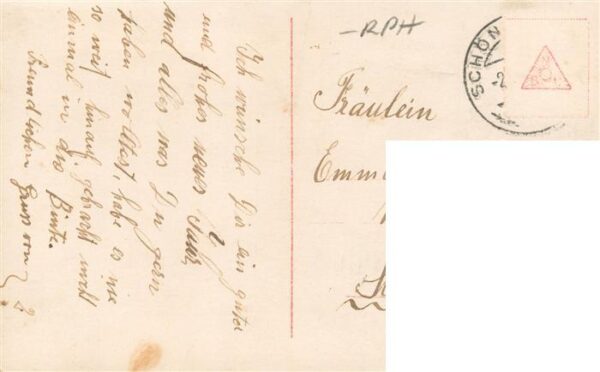 Ich wünsche Dir ein gutes
und frohes neues Jahr,
und alles was Du gern
haben wolltest, habe es nie
so weit hinauf gebracht
einmal in die
Freundlichen Gruss von
-RPH
SCHÖN
Fräulein
Emm